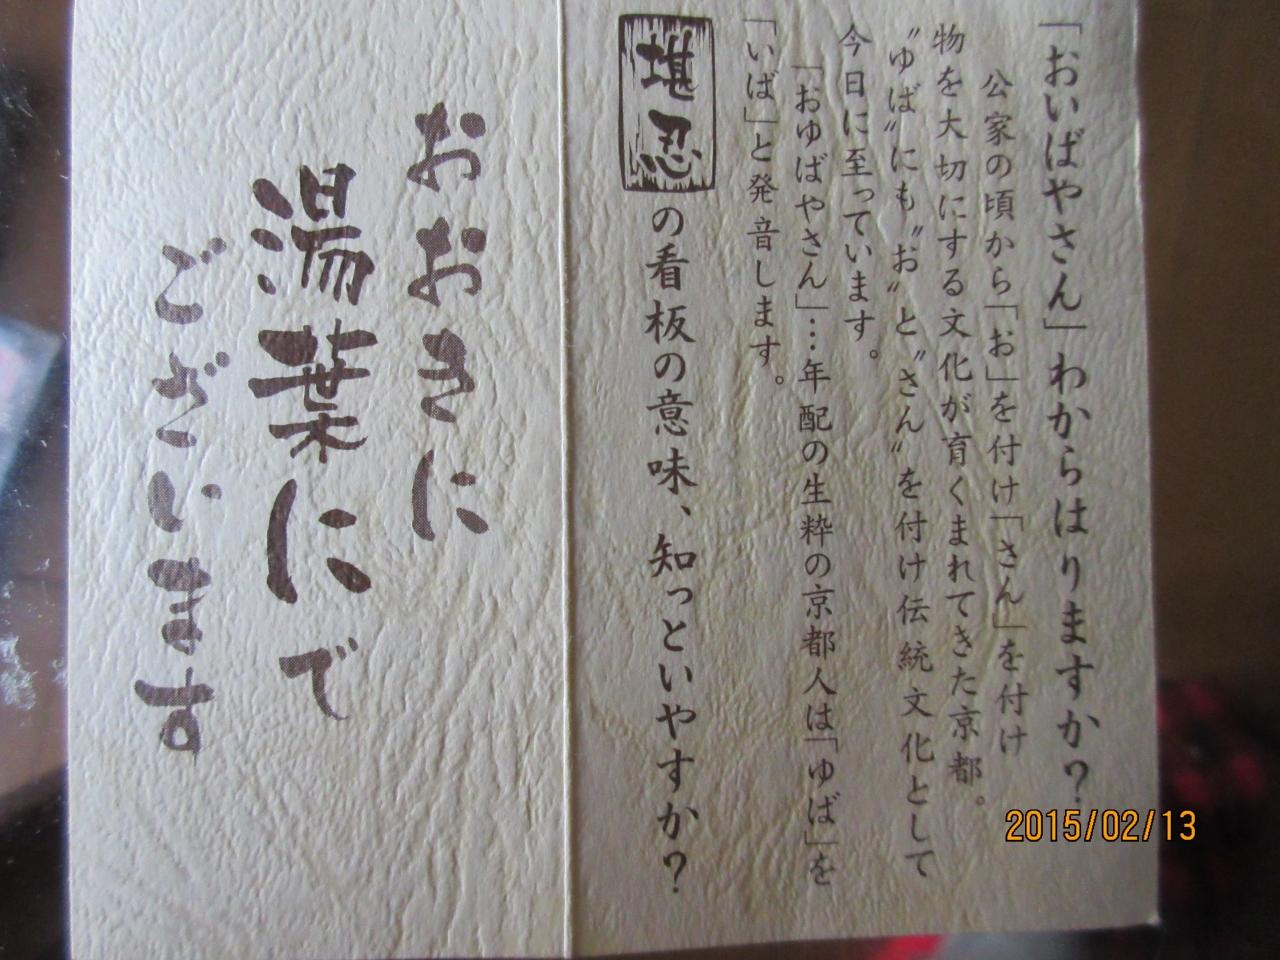 「おいばやさん」わからはりますか?
公家の頃から「お」を付け「さん」を付け
物を大切にする文化が育くまれてきた京都。
〝ゆば〟にも〝お〟と〝さん〟を付け伝統文化として
今日に至っています。
「おゆばやさん」…年配の生粋の京都人は「ゆば」を
「いば」と発音します。
堪忍の看板の意味、知っといやすか?
おおきに
湯葉にで
ございます
2015/02/13